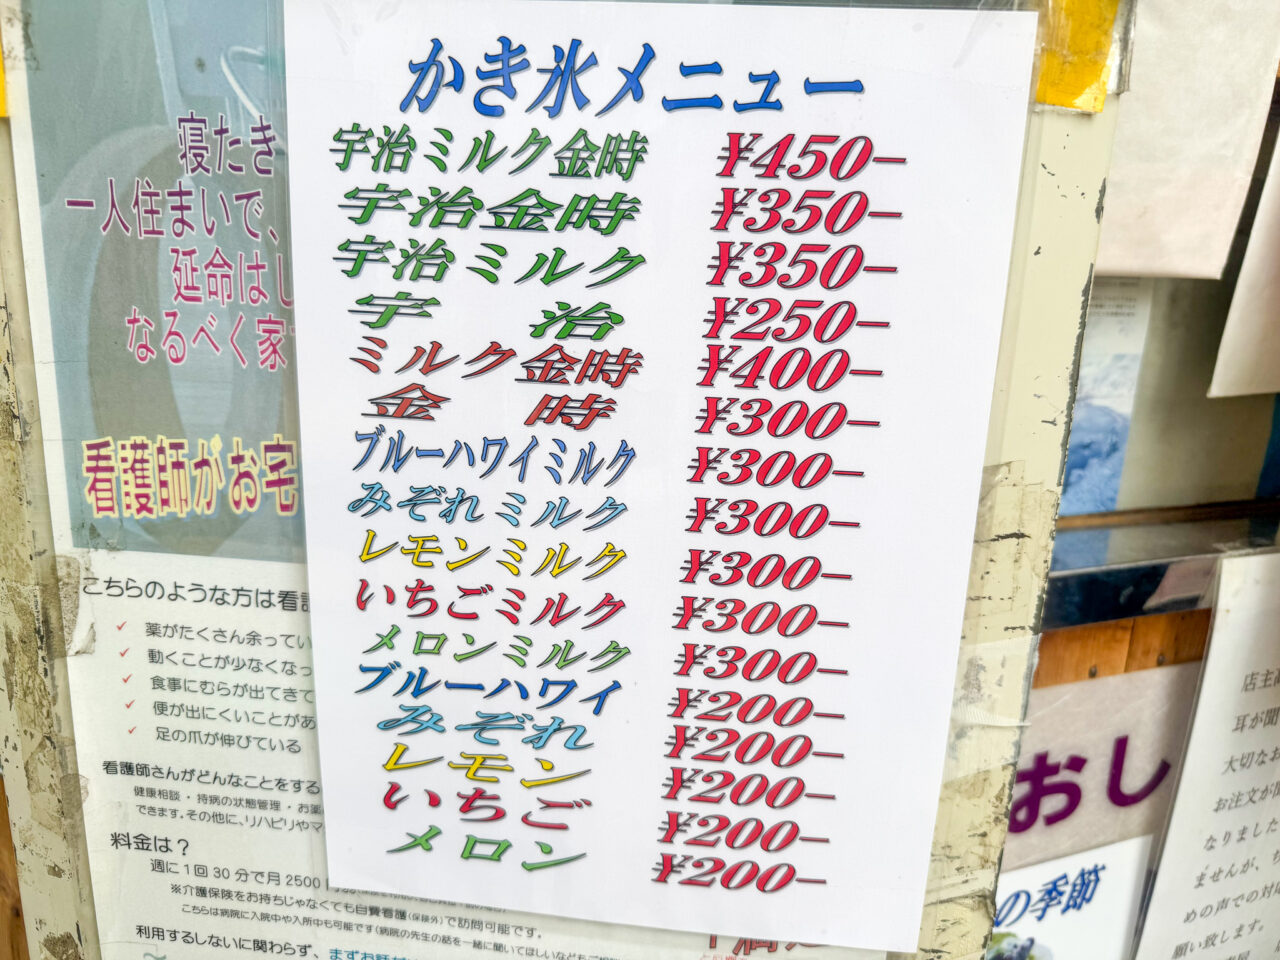 かき氷メニュー
宇治ミルク金時 ¥450−
宇治金時 ¥350−
宇治ミルク ¥350−
宇 治 ¥250−
ミルク金時 ¥400−
金 時 ¥300−
ブルーハワイミルク ¥300−
みぞれミルク ¥300−
レモンミルク ¥300−
いちごミルク ¥300−
メロンミルク ¥300−
ブルーハワイ ¥200−
みぞれ ¥200−
レモン ¥200−
いちご ¥200−
メロン ¥200−
寝たき
一人住まいで、
延命はし
なるべく家
看護師がお宅
こちらのような方は看護
✓ 薬がたくさん余ってい
✓ 動くことが少なくなっ
✓ 食事にむらが出てきて
✓ 便が出にくいことがあ
✓ 足の爪が伸びている
看護師さんがどんなことをする
健康相談・持病の状態管理・お薬
できます。その他に、リハビリやマ
料金は？
週に1回30分で月2500
※介護保険をお持ちじゃなくても自費看護(保険外)で訪問可能です。
こちらは病院に入院中や入所中も可能です(病院の先生の話を一緒に聞いてほしいなどもご相
利用するしないに関わらず、まずお話
おし
の季節
店主高
耳が聞
大切なお
お注文が聞
なりました
ませんが、
めの声での対
願い致します。